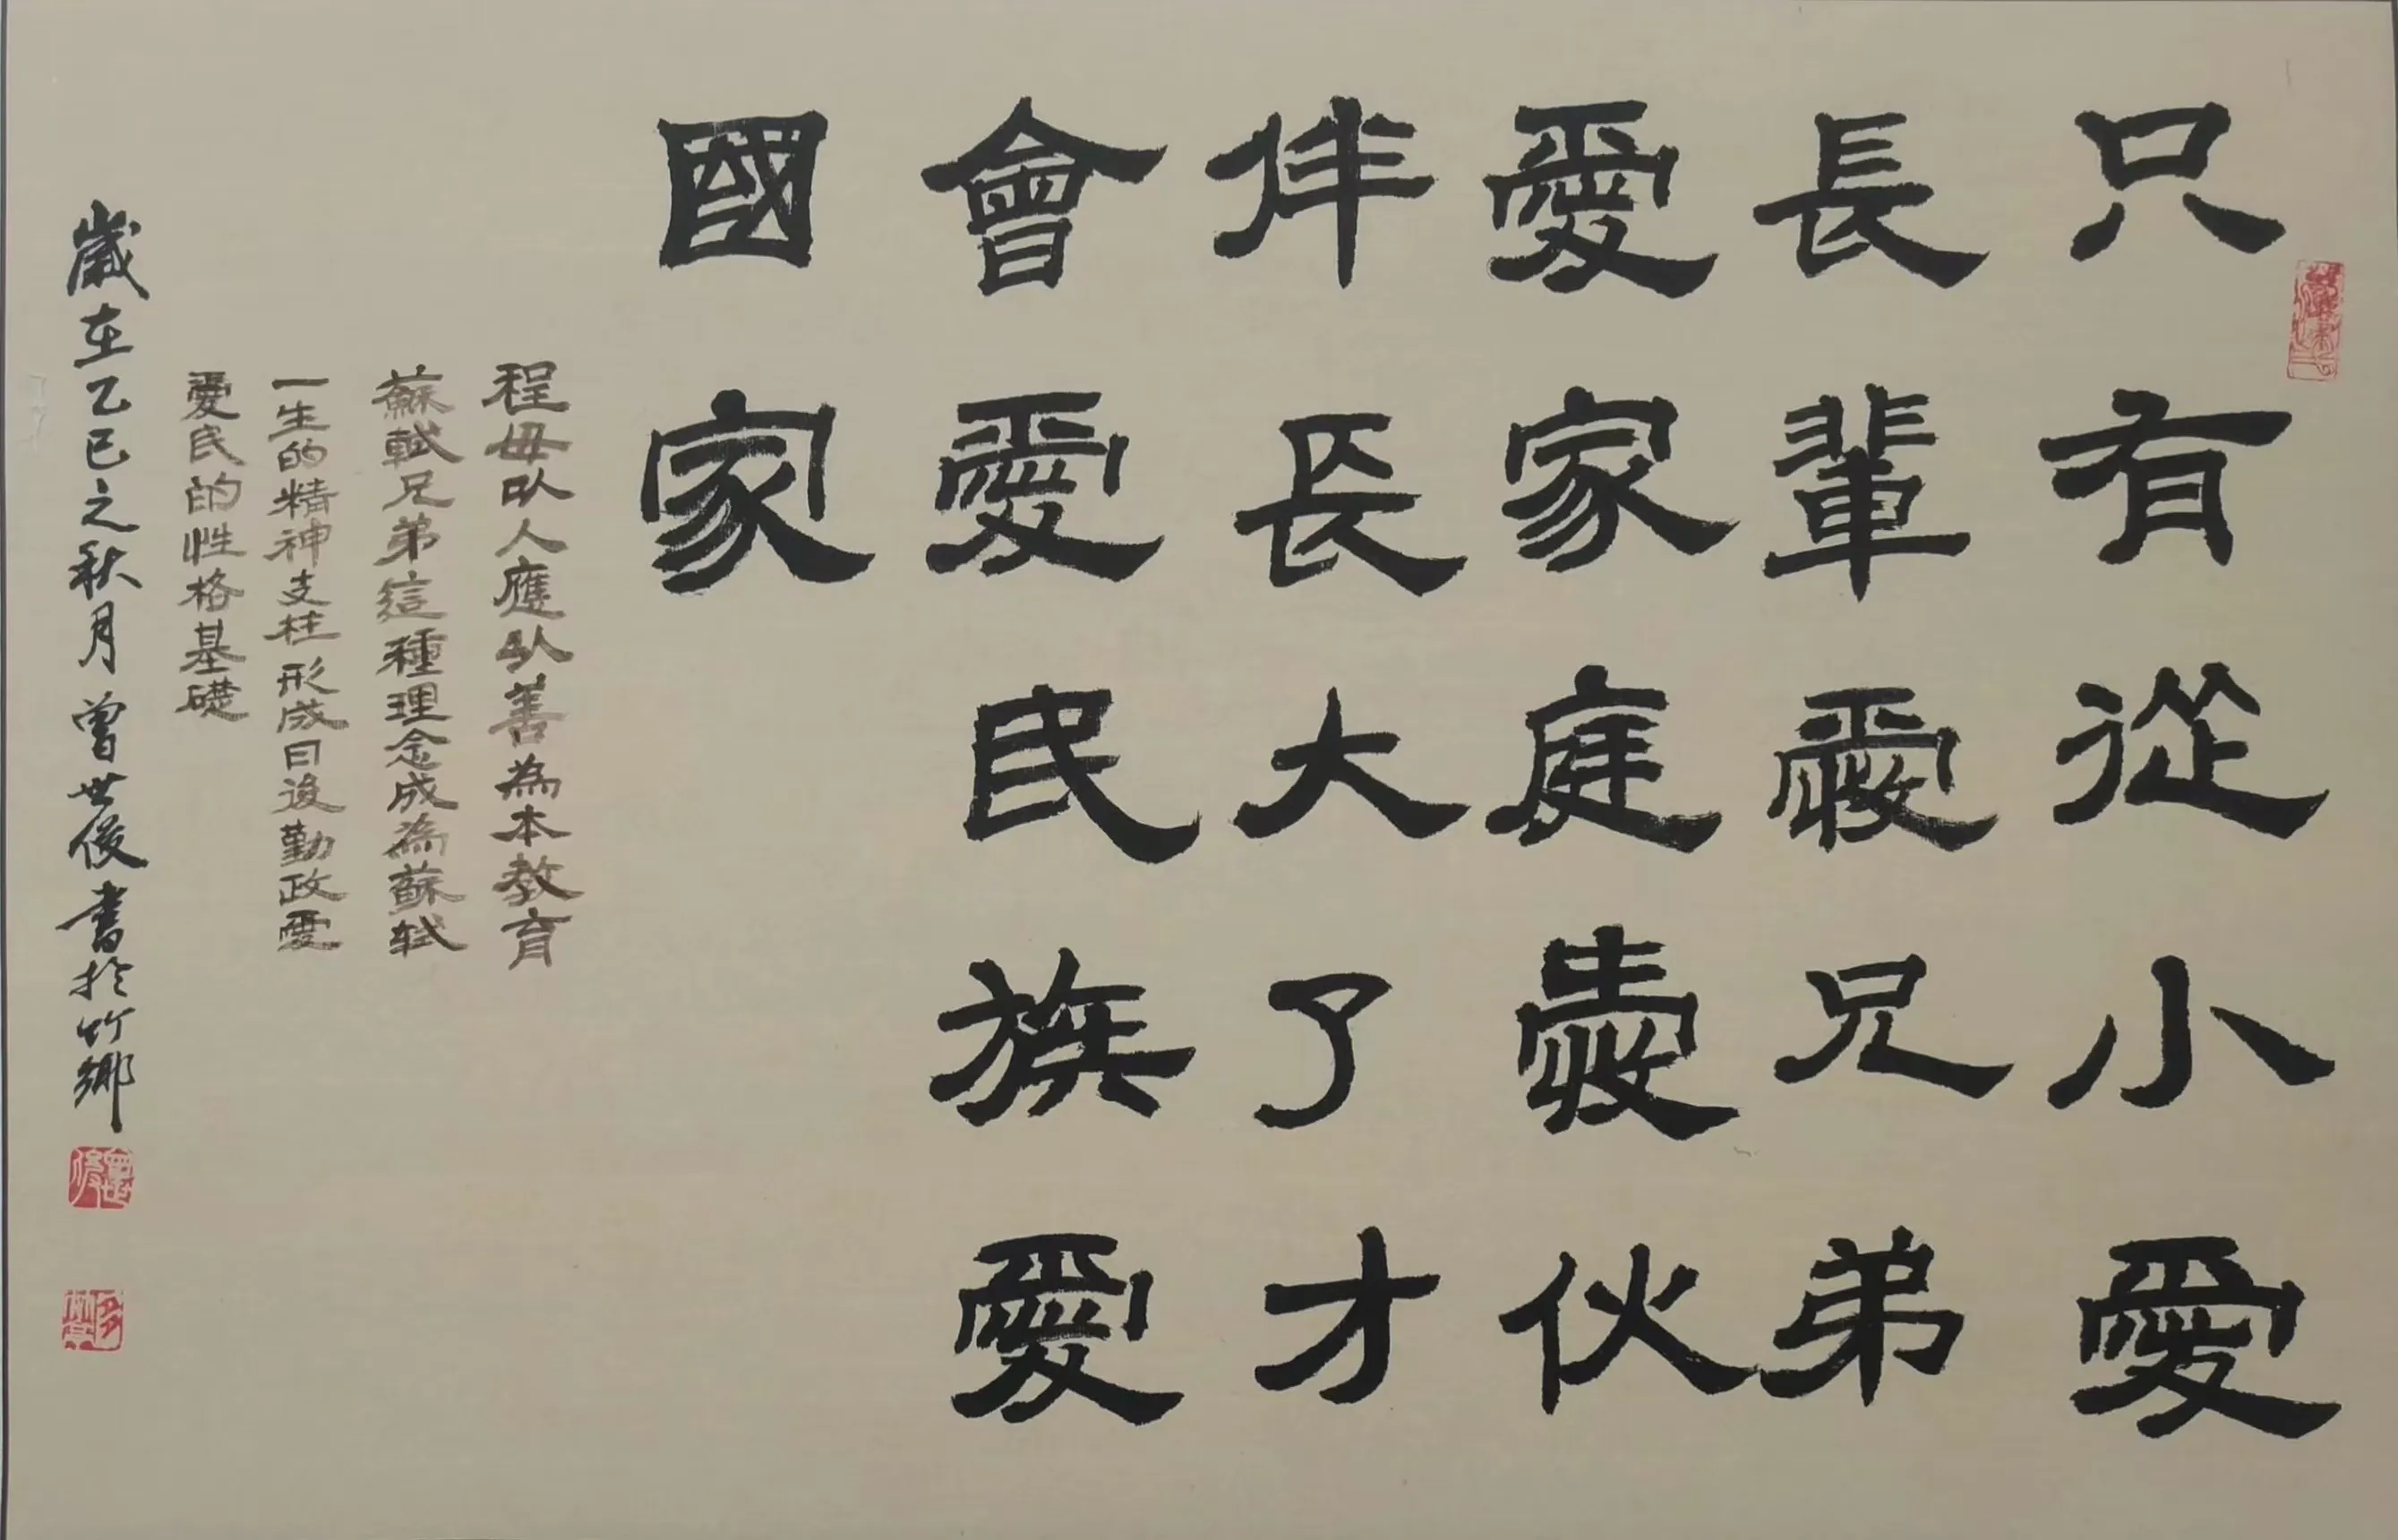 只有從小愛
長輩愛兄弟
愛家庭愛伙
伴長大了才
會愛民族愛
國家
程母以人應以善為本教育
蘇軾兄弟這種理念成為蘇軾
一生的精神支柱形成日後勤政愛
愛民的性格基礎
歲在乙巳之秋月曾世俊書於竹鄉